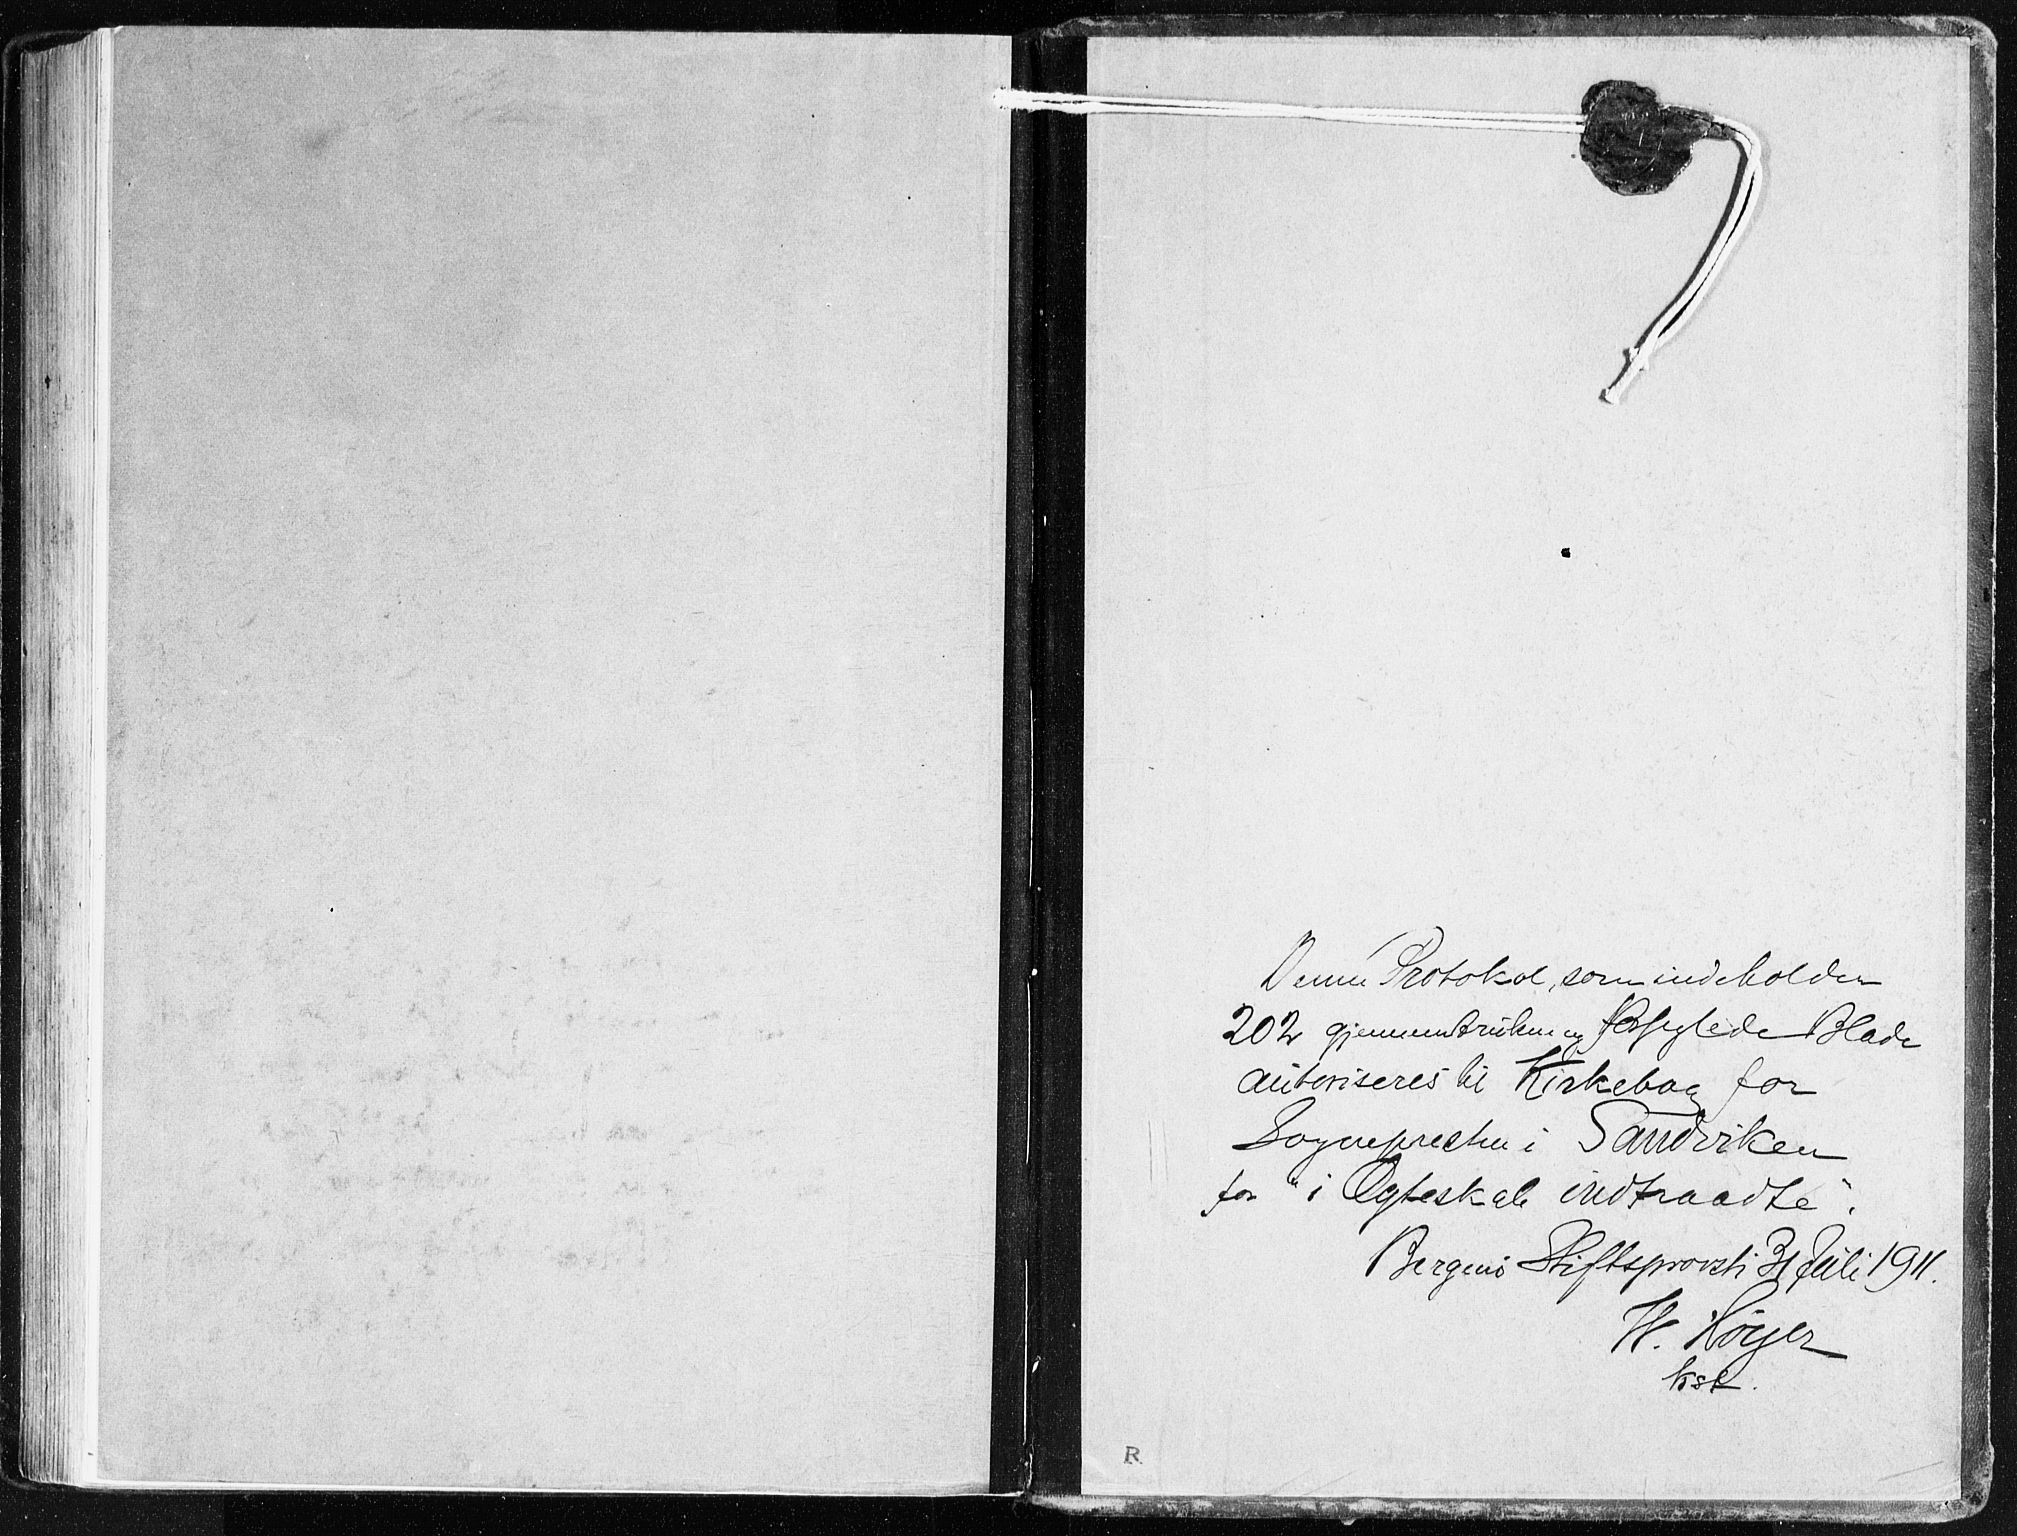 Denne Protokol, som indeholder
202 gjennemtrukne og forseglede Blade
autoriseres til Kirkebog for
Sognepresten i Sandviken
for "i Ægteskab indtraadte".
Bergens Stiftsprovsti 31 Juli 1911.
W. Koijer
kst.
R.